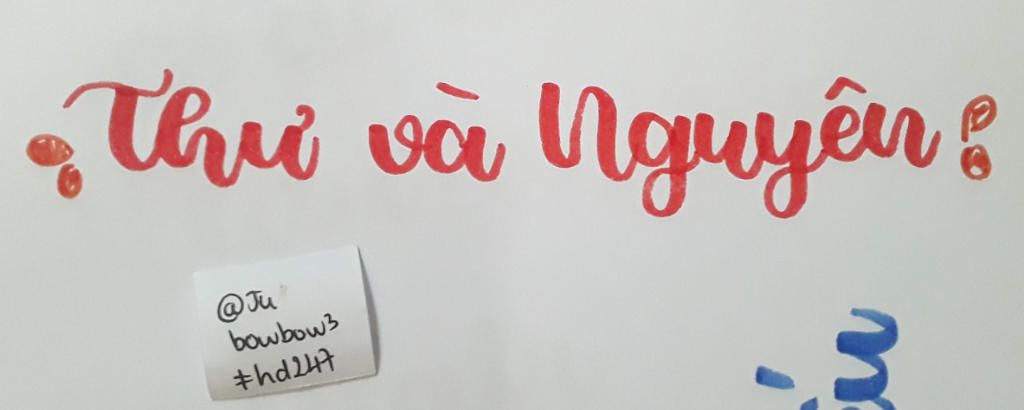 Thư và Nguyên
@Ju
bowbow3
#hd247